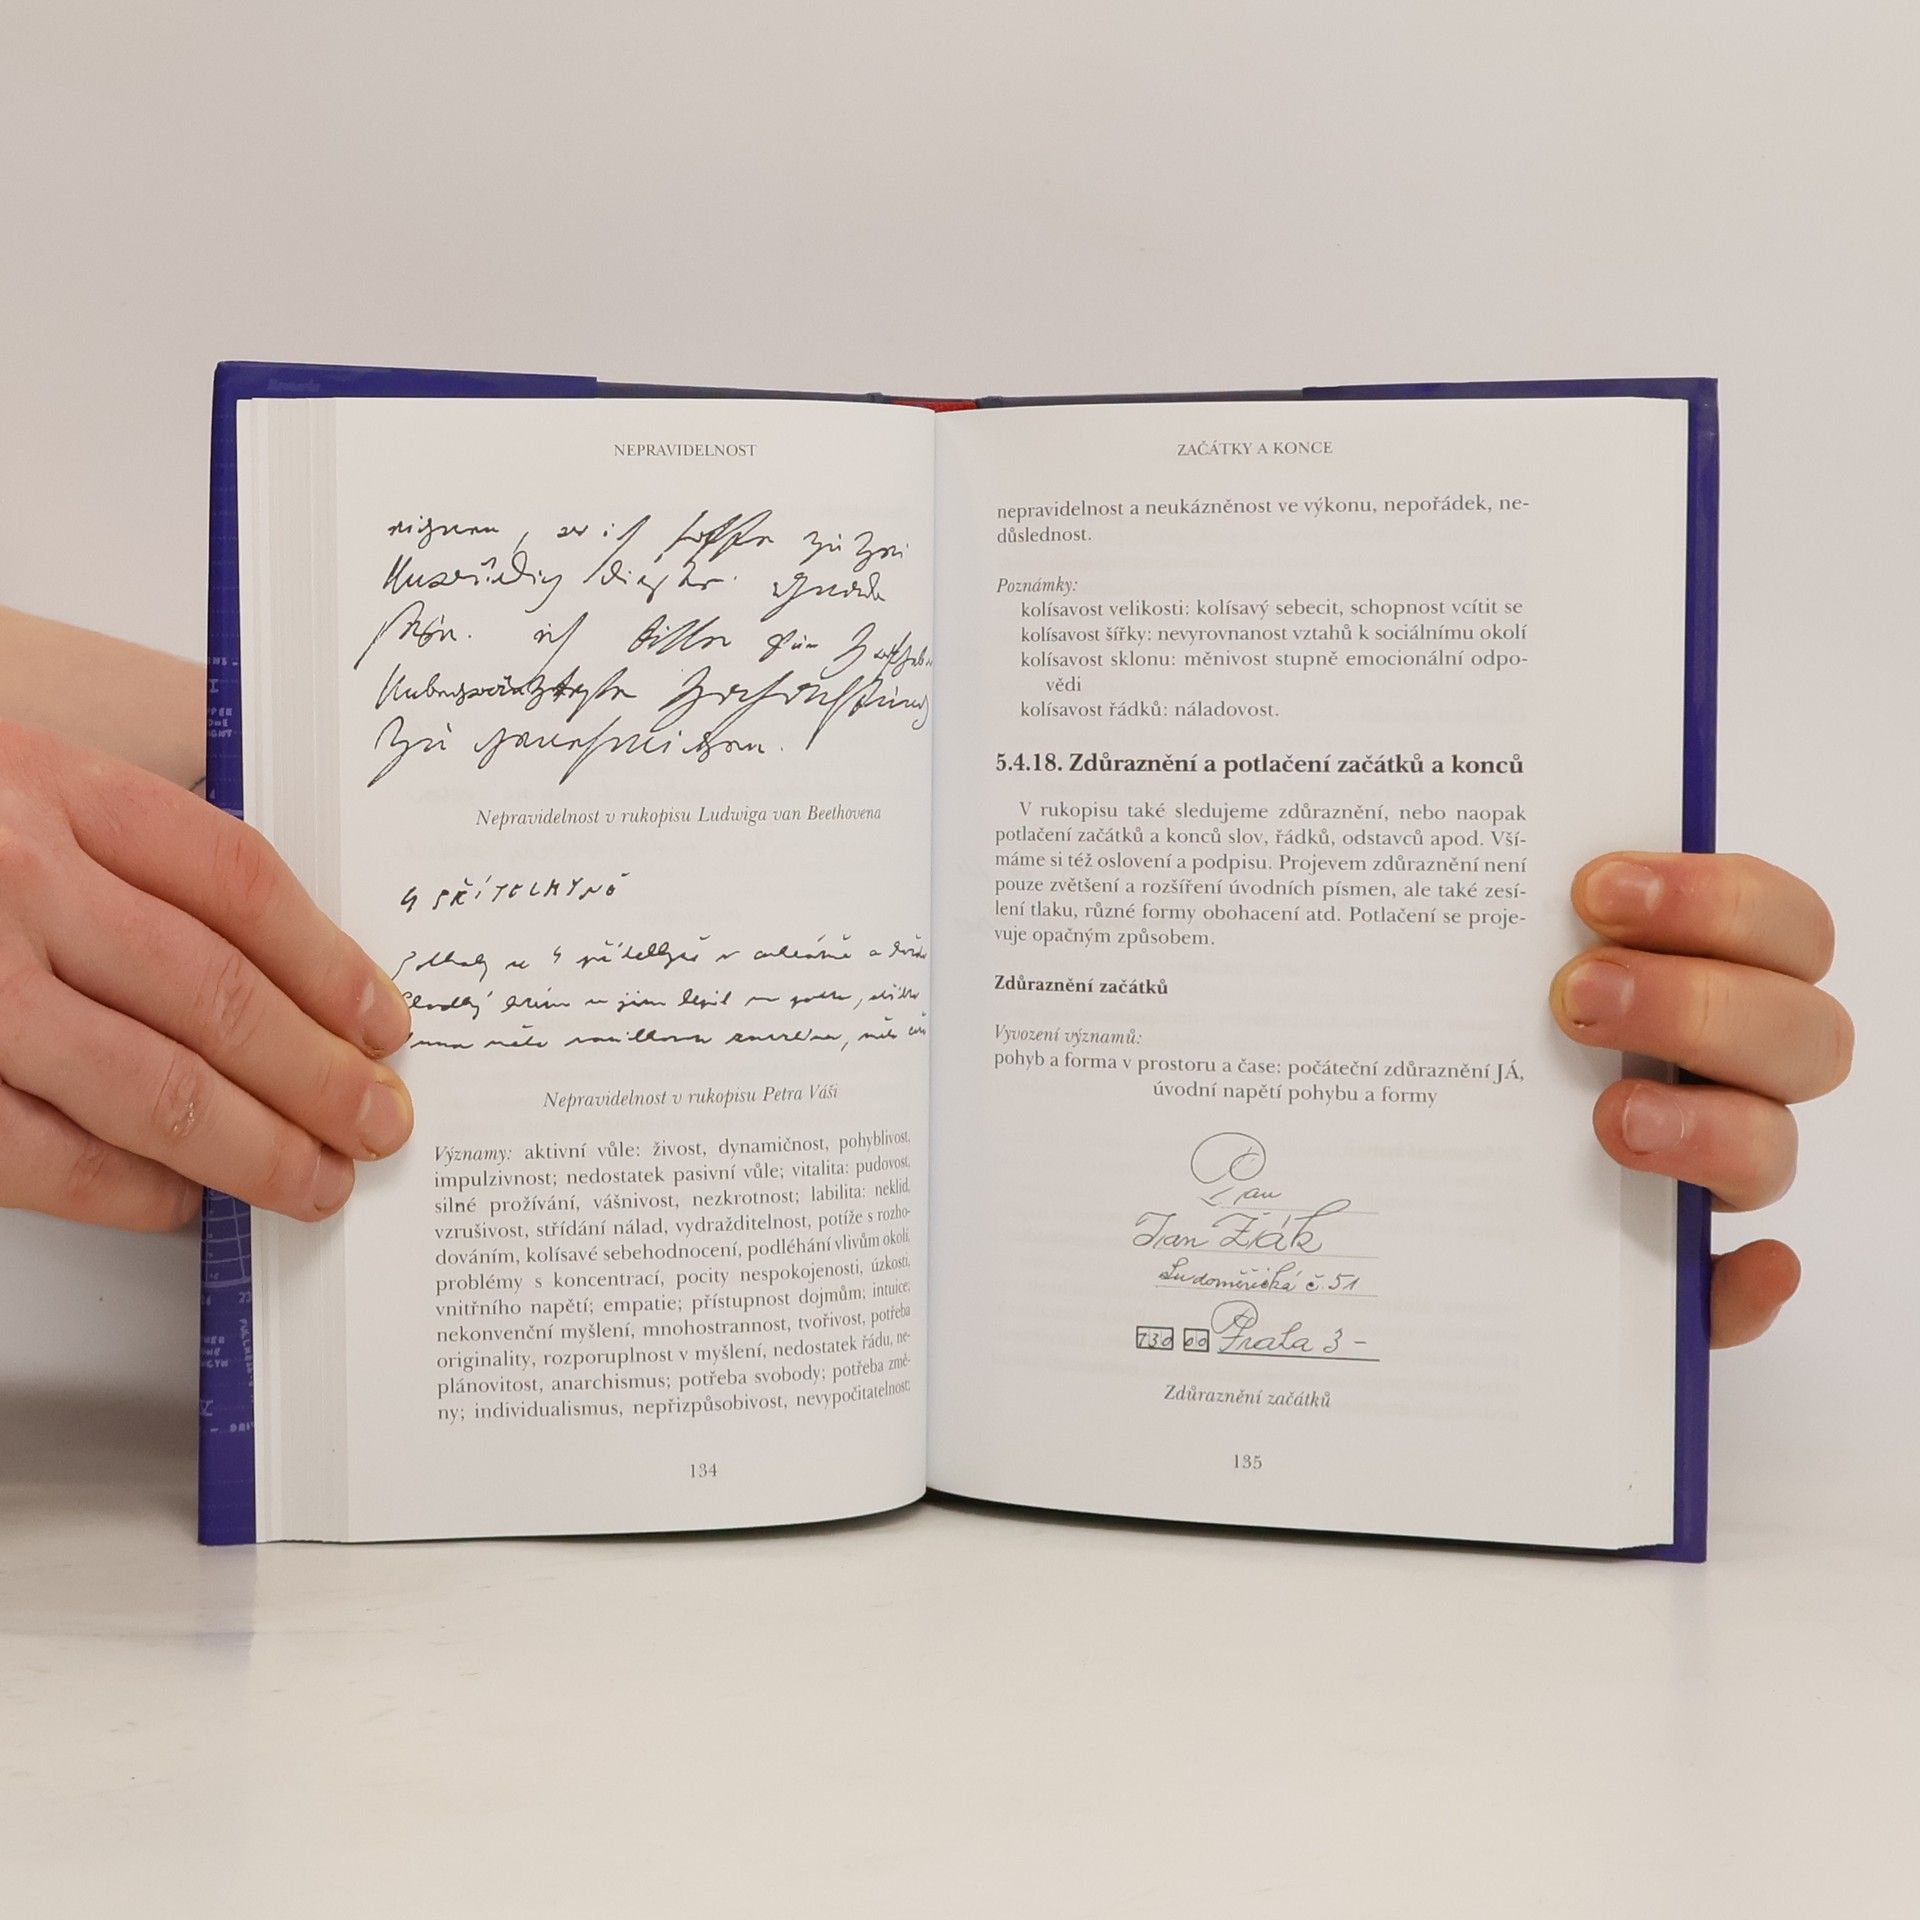 NEPRAVIDELNOST
Nepravidelnost v rukopisu Ludwiga van Beethovena
Nepravidelnost v rukopisu Petra Váši
Významy: aktivní vůle: živost, dynamičnost, pohyblivost,
impulzivnost; nedostatek pasivní vůle; vitalita: pudovost,
silné prožívání, vášnivost, nezkrotnost; labilita: neklid,
vzrušivost, střídání nálad, vydrážditelnost, potíže s rozho-
dováním, kolísavé sebehodnocení, podléhání vlivům okolí,
problémy s koncentrací, pocity nespokojenosti, úzkosti,
vnitřního napětí; empatie; přístupnost dojmům; intuice;
nekonvenční myšlení, mnohostrannost, tvořivost, potřeba
originality, rozporuplnost v myšlení, nedostatek řádu, ne-
plánovitost, anarchismus; potřeba svobody; potřeba změ-
ny; individualismus, nepřizpůsobivost, nevypočitatelnost;
134
ZAČÁTKY A KONCE
nepravidelnost a neukázněnost ve výkonu, nepořádek, ne-
důslednost.
Poznámky:
kolísavost velikosti: kolísavý sebecit, schopnost vcítit se
kolísavost šířky: nevyrovnanost vztahů k sociálnímu okolí
kolísavost sklonu: měnivost stupně emocionální odpo-
vědi
kolísavost řádků: náladovost.
5.4.18. Zdůraznění a potlačení začátků a konců
V rukopisu také sledujeme zdůraznění, nebo naopak
potlačení začátků a konců slov, řádků, odstavců apod. Vší-
máme si též oslovení a podpisu. Projevem zdůraznění není
pouze zvětšení a rozšíření úvodních písmen, ale také zesí-
lení tlaku, různé formy obohacení atd. Potlačení se proje-
vuje opačným způsobem.
Zdůraznění začátků
Vyvození významů:
pohyb a forma v prostoru a čase: počáteční zdůraznění JÁ,
úvodní napětí pohybu a formy
Jan Žák
Ludoměřická č. 51
130 00 Praha 3 -
Zdůraznění začátků
135